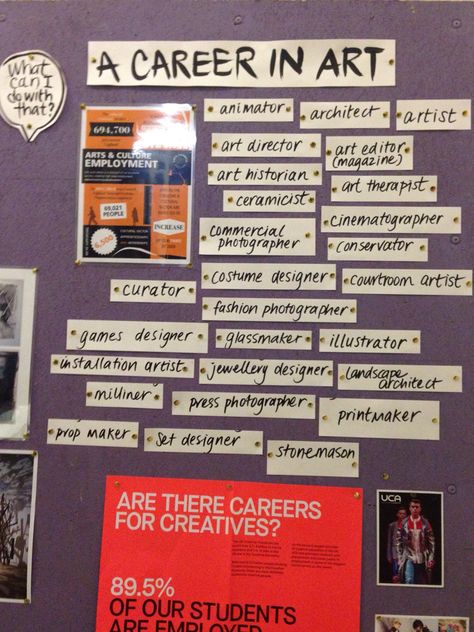 What
can I
do with
that?
A CAREER IN ART
animator
architect
artist
art director
art editor
(magazine)
art historian
art therapist
ceramicist
cinematographer
commercial
photographer
conservator
costume designer
courtroom artist
curator
fashion photographer
games designer
glassmaker
illustrator
installation artist
jewellery designer
landscape
architect
milliner
press photographer
printmaker
prop maker
set designer
stonemason
694,700
ARTS & CULTURE
EMPLOYMENT
69,021
PEOPLE
INCREASE
6,500
ARE THERE CAREERS
FOR CREATIVES?
89.5%
OF OUR STUDENTS
ARE EMPLOYED
UCA